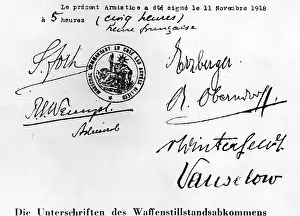 Le présent Armistice a été signé le 11 Novembre 1918
à 5 heures (cinq heures)
heure française
F. Foch
R. E. Wemyss
Admiral
Erzberger
A. Oberndorff
Winterfeldt
Vanselow
Die Unterschriften des Waffenstillstandsabkommens